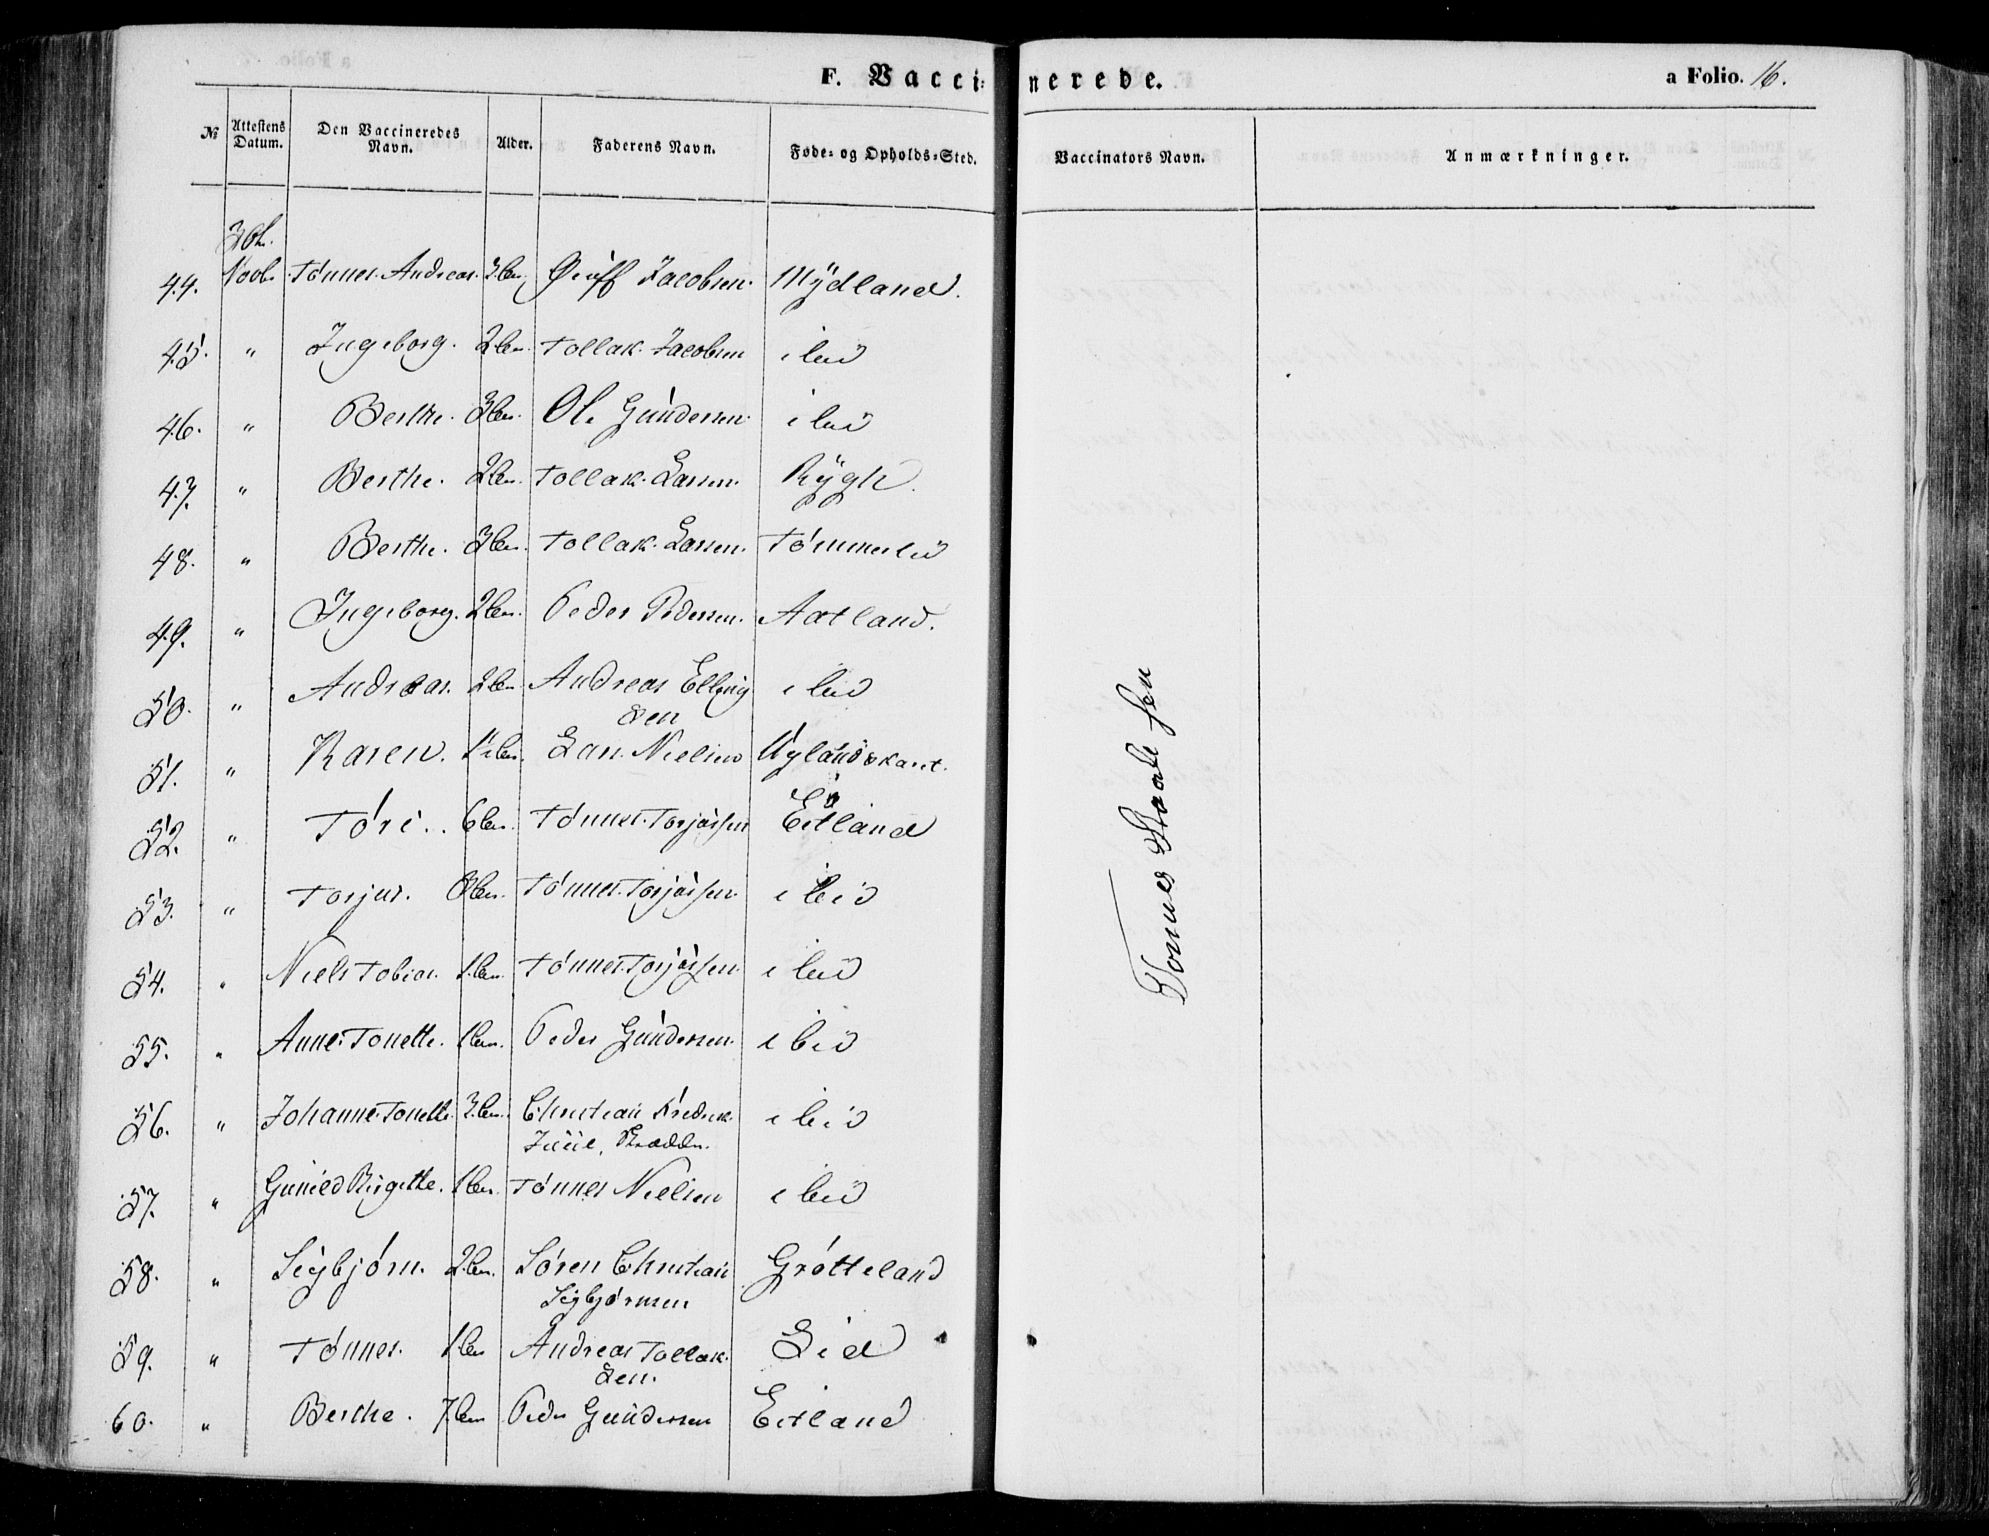 F. Vaccinerede.
a Folio. 16.
№ Attestens Datum. Den Vaccineredes Navn. Alder. Faderens Navn. Føde- og Opholds-Sted. Vaccinators Navn. Anmærkninger.
44. Novbr. Tønnes Andreas. Jacobsen. Mydland.
45. " Ingeborg. 2 Tollak Jacobsen ibid
46. " Berthe. 3 Ole Gundersen ibid
47. " Berthe. 2 Tollak Larsen. Rygh.
48. " Berthe. 3 Tollak Larsen. Tømmerlid
49. " Ingeborg. 2 Peder Pedersen. Aatland.
50. " Andreas. 2 Andreas Elling
sen ibid
51. " Karen. Lars Nielsen Uglandskant.
52. " Tøri. 6 Tønnes Torjussen Eitland
53. " Torjus. 8 Tønnes Torjussen. ibid
54. " Niels Tobias. 1 Tønnes Torjussen. ibid
55. " Anne Tonette. 1 Peder Gundersen. ibid
56. " Johanne Tonette. 3 Christian Fredrik
Juul, ibid
57. " Gunild Birgitte. 1 Tønnes Nielsen ibid
58. " Sigbjørn. 2 Søren Christian
Sigbjørnsen Grøtteland
59. " Tønnes. 1 Andreas Tollak
sen. Lid
60. " Berthe. 7 Peder Gundersen Eitland
Tønnes Staalesen